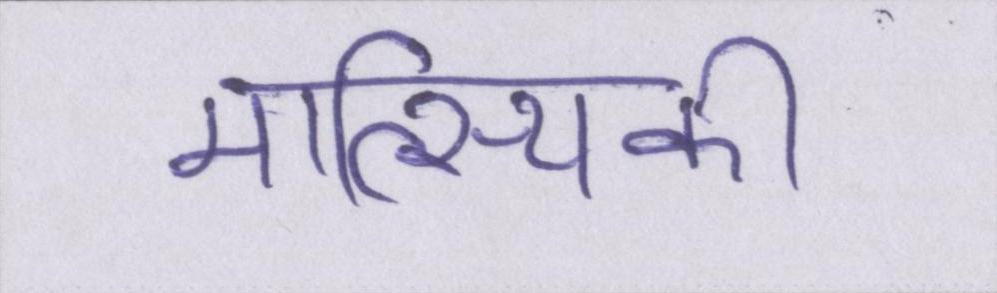 मात्स्यिकी